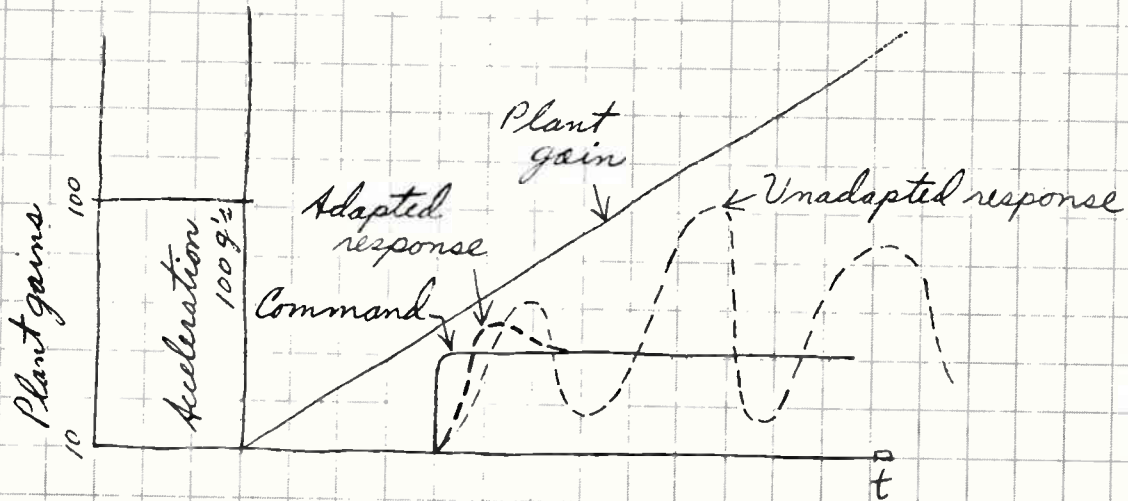 Plant gains
100
10
Acceleration
100 g's
Plant
gain
Adapted
response
Command
Unadapted response
t